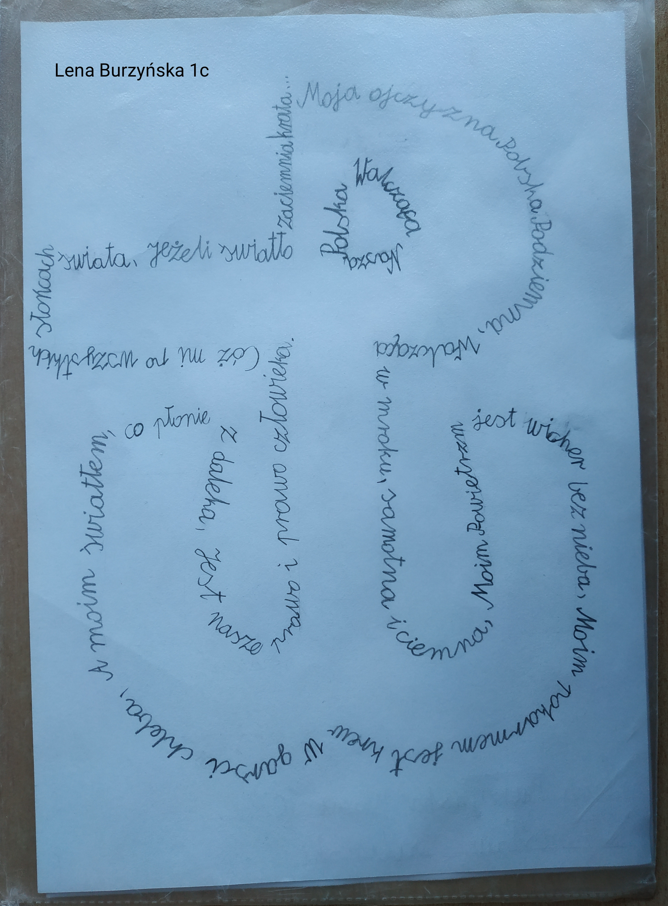 Lena Burzyńska 1c
Moja ojczyzna Polska Podziemna,
Walcząca w mroku, samotna i ciemna,
Moim Powietrzem jest wicher bez nieba,
Moim pokarmem jest krew w garści chleba,
A moim światłem, co płonie z daleka,
Jest i prawo człowieka.
Cóż mi po wszystkich słońcach świata,
jeżeli światło zaciemnia krata...
Nasza Polska Walcząca